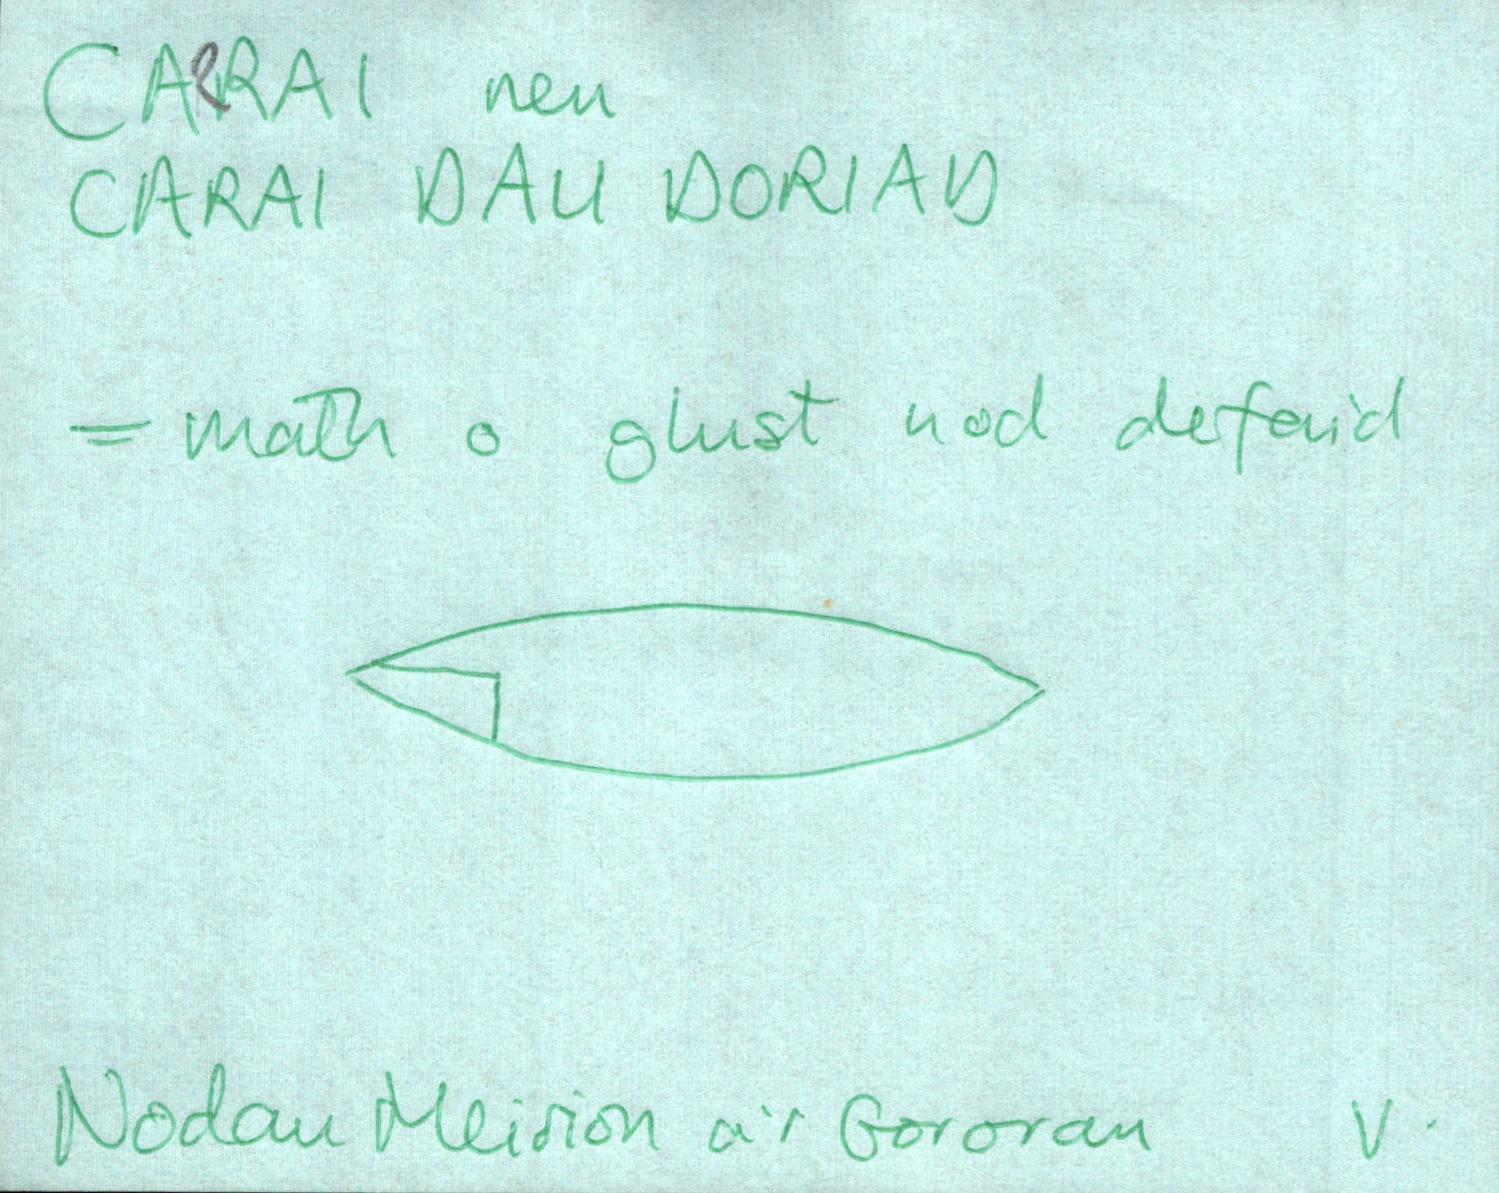 CARRAI neu
CARAI DAU DORIAD
= math o glust nod defaid
Nodau Meirion a'r Gororau V.